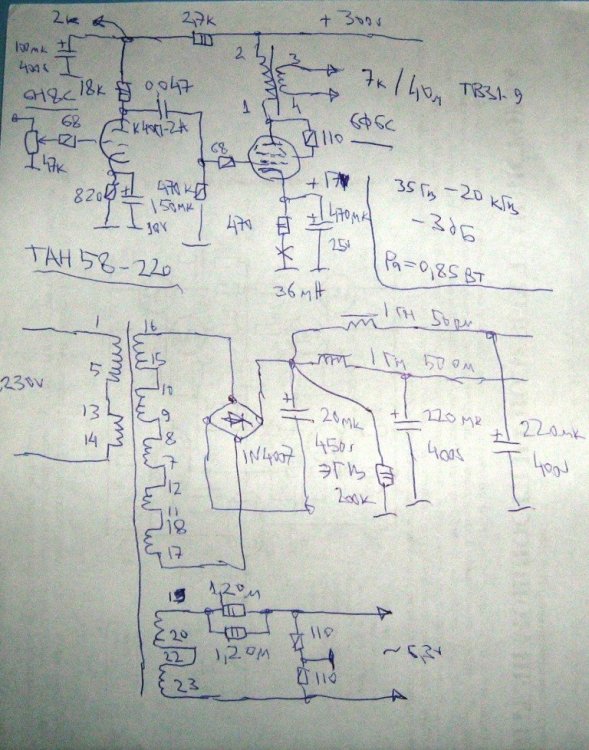 2к 2,7к +300v
100мк
400v
2 3
7к/4Ом ТВЗ1-9
6Н8С 18к 0,047 1 4
К40П-2А 110 6Ф6С
68
68
47к
820 470к + 17v
150мк
10v
470 470мк
25v
36мА
35Гц - 20кГц
- 3дБ
Ра=0,85Вт
ТАН58-220
1 16 1Гн 50Ом
5 15 1Гн 50Ом
230v 10
13 9 20мк 220мк 220мк
14 8 1N4007 450v 400v 400v
7 ЭГЦ
12 200к
11
18
17
19 1,2Ом
20 1,2Ом 110 ~6,3v
22
23 110